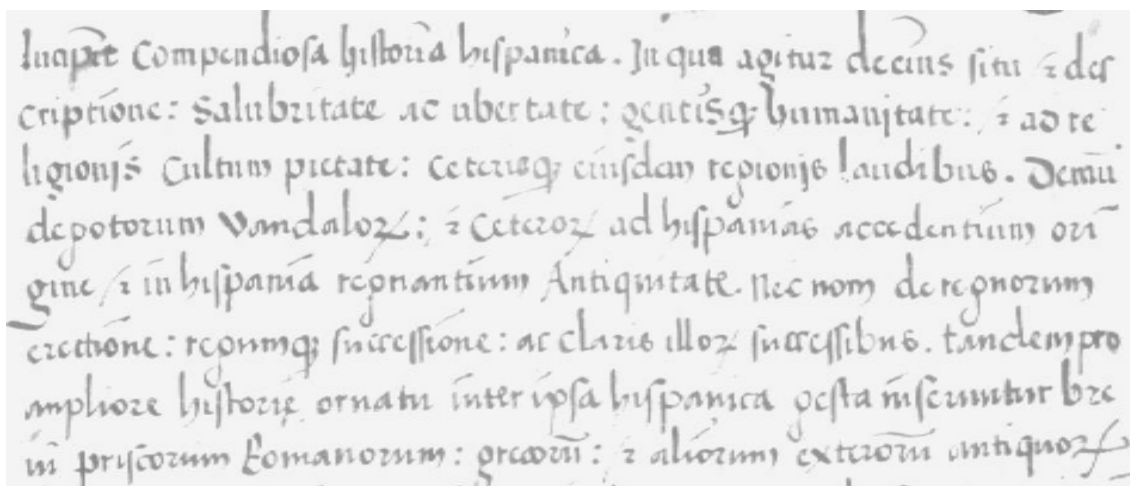 Incipit Compendiosa historia hispanica. In qua agitur de eius situ ⁊ des
criptione: Salubritate ac ubertate: gentisqꝫ humanitate: ⁊ ad re
ligionis cultum pietate: Ceterisqꝫ eiusdem regionis laudibus. Demū
de gotorum Vandaloꝝ: ⁊ Ceteroꝝ ad hispanias accedentium ori
gine / ⁊ in hispania regnantium Antiquitate. Nec nom de regnorum
erectione: regumqꝫ successione: ac claris illoꝝ successibus. tandem pro
ampliore historię ornatu inter ipsa hispanica gesta inseruntur bre
in priscorum Romanorum: grecorū: ⁊ aliorum exterorū antiquoꝝ